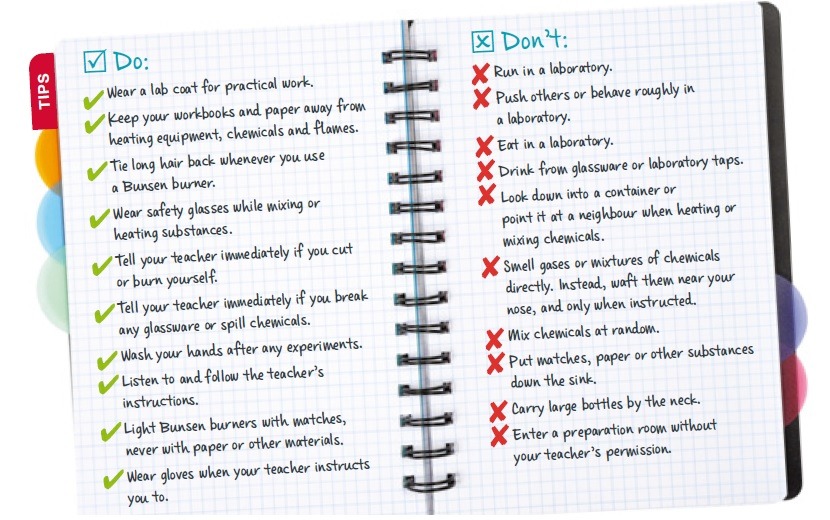 TIPS
Do:
Wear a lab coat for practical work.
Keep your workbooks and paper away from
heating equipment, chemicals and flames.
Tie long hair back whenever you use
a Bunsen burner.
Wear safety glasses while mixing or
heating substances.
Tell your teacher immediately if you cut
or burn yourself.
Tell your teacher immediately if you break
any glassware or spill chemicals.
Wash your hands after any experiments.
Listen to and follow the teacher's
instructions.
Light Bunsen burners with matches,
never with paper or other materials.
Wear gloves when your teacher instructs
you to.
Don't:
Run in a laboratory.
Push others or behave roughly in
a laboratory.
Eat in a laboratory.
Drink from glassware or laboratory taps.
Look down into a container or
point it at a neighbour when heating or
mixing chemicals.
Smell gases or mixtures of chemicals
directly. Instead, waft them near your
nose, and only when instructed.
Mix chemicals at random.
Put matches, paper or other substances
down the sink.
Carry large bottles by the neck.
Enter a preparation room without
your teacher's permission.